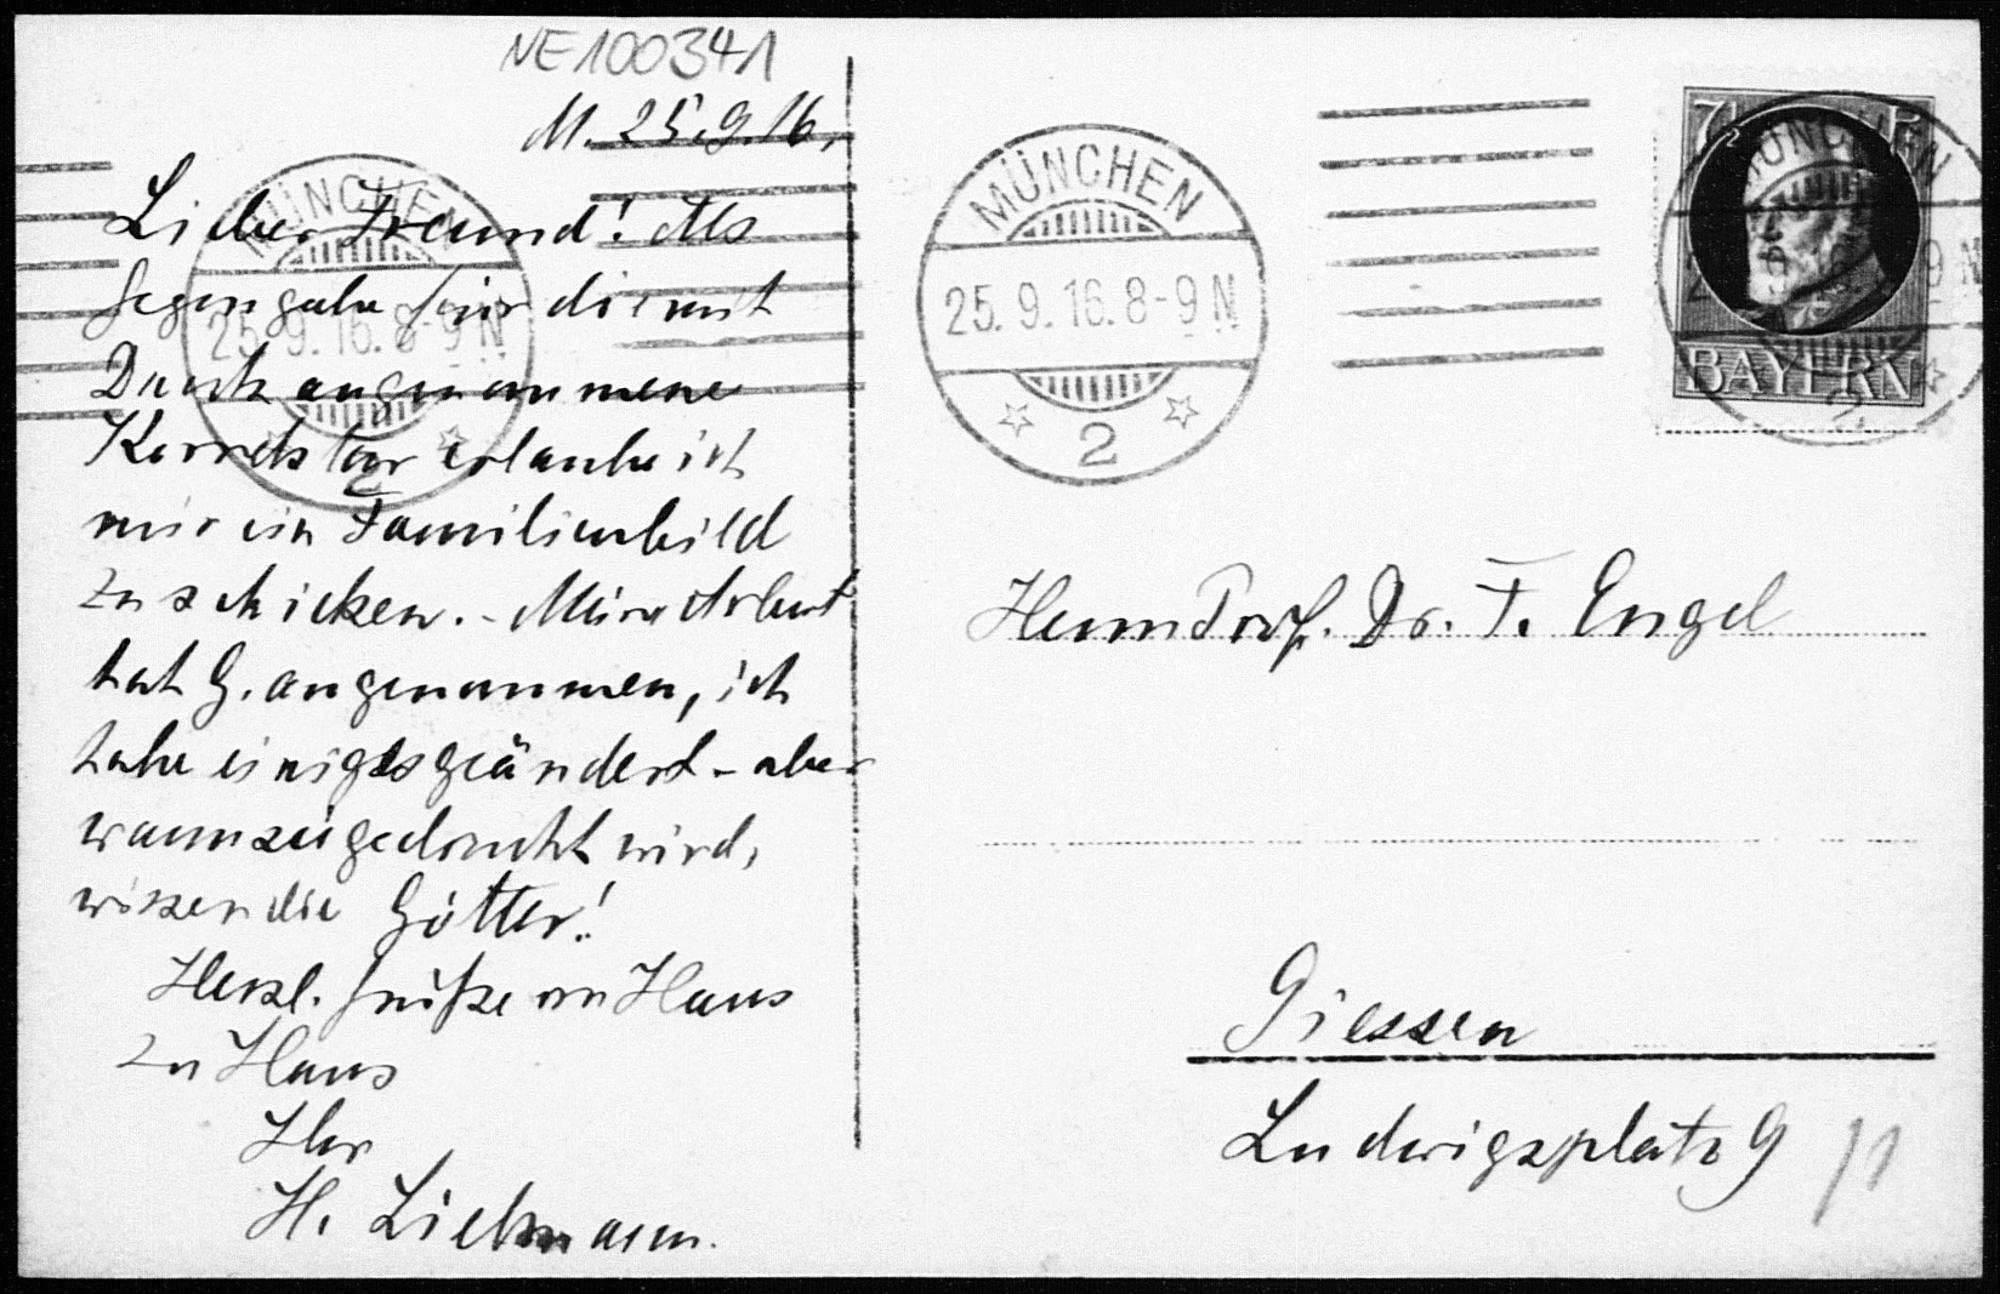 NE100341
M. 25.9.16.
Lieber Freund! Als
Gegengabe für die mit
Dank angenommene
Korrektur erlaube ich
mir ein Familienbild
zu schicken. - Meine Arbeit
hat G. angenommen, ich
habe einiges geändert - aber
wann sie gedruckt wird,
wissen die Götter!
Herzl. Grüße von Haus
zu Haus
Ihr
H. Liebmann.
MÜNCHEN
25. 9. 16. 8-9 N
2
MÜNCHEN
25. 9. 16. 8-9 N
2
7½ P
BAYERN
MÜNCHEN
9 N
2
Herrn Prof. Dr. F. Engel
Giessen
Ludwigsplatz 9